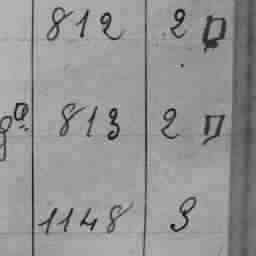 812 2
813 2
1148 3